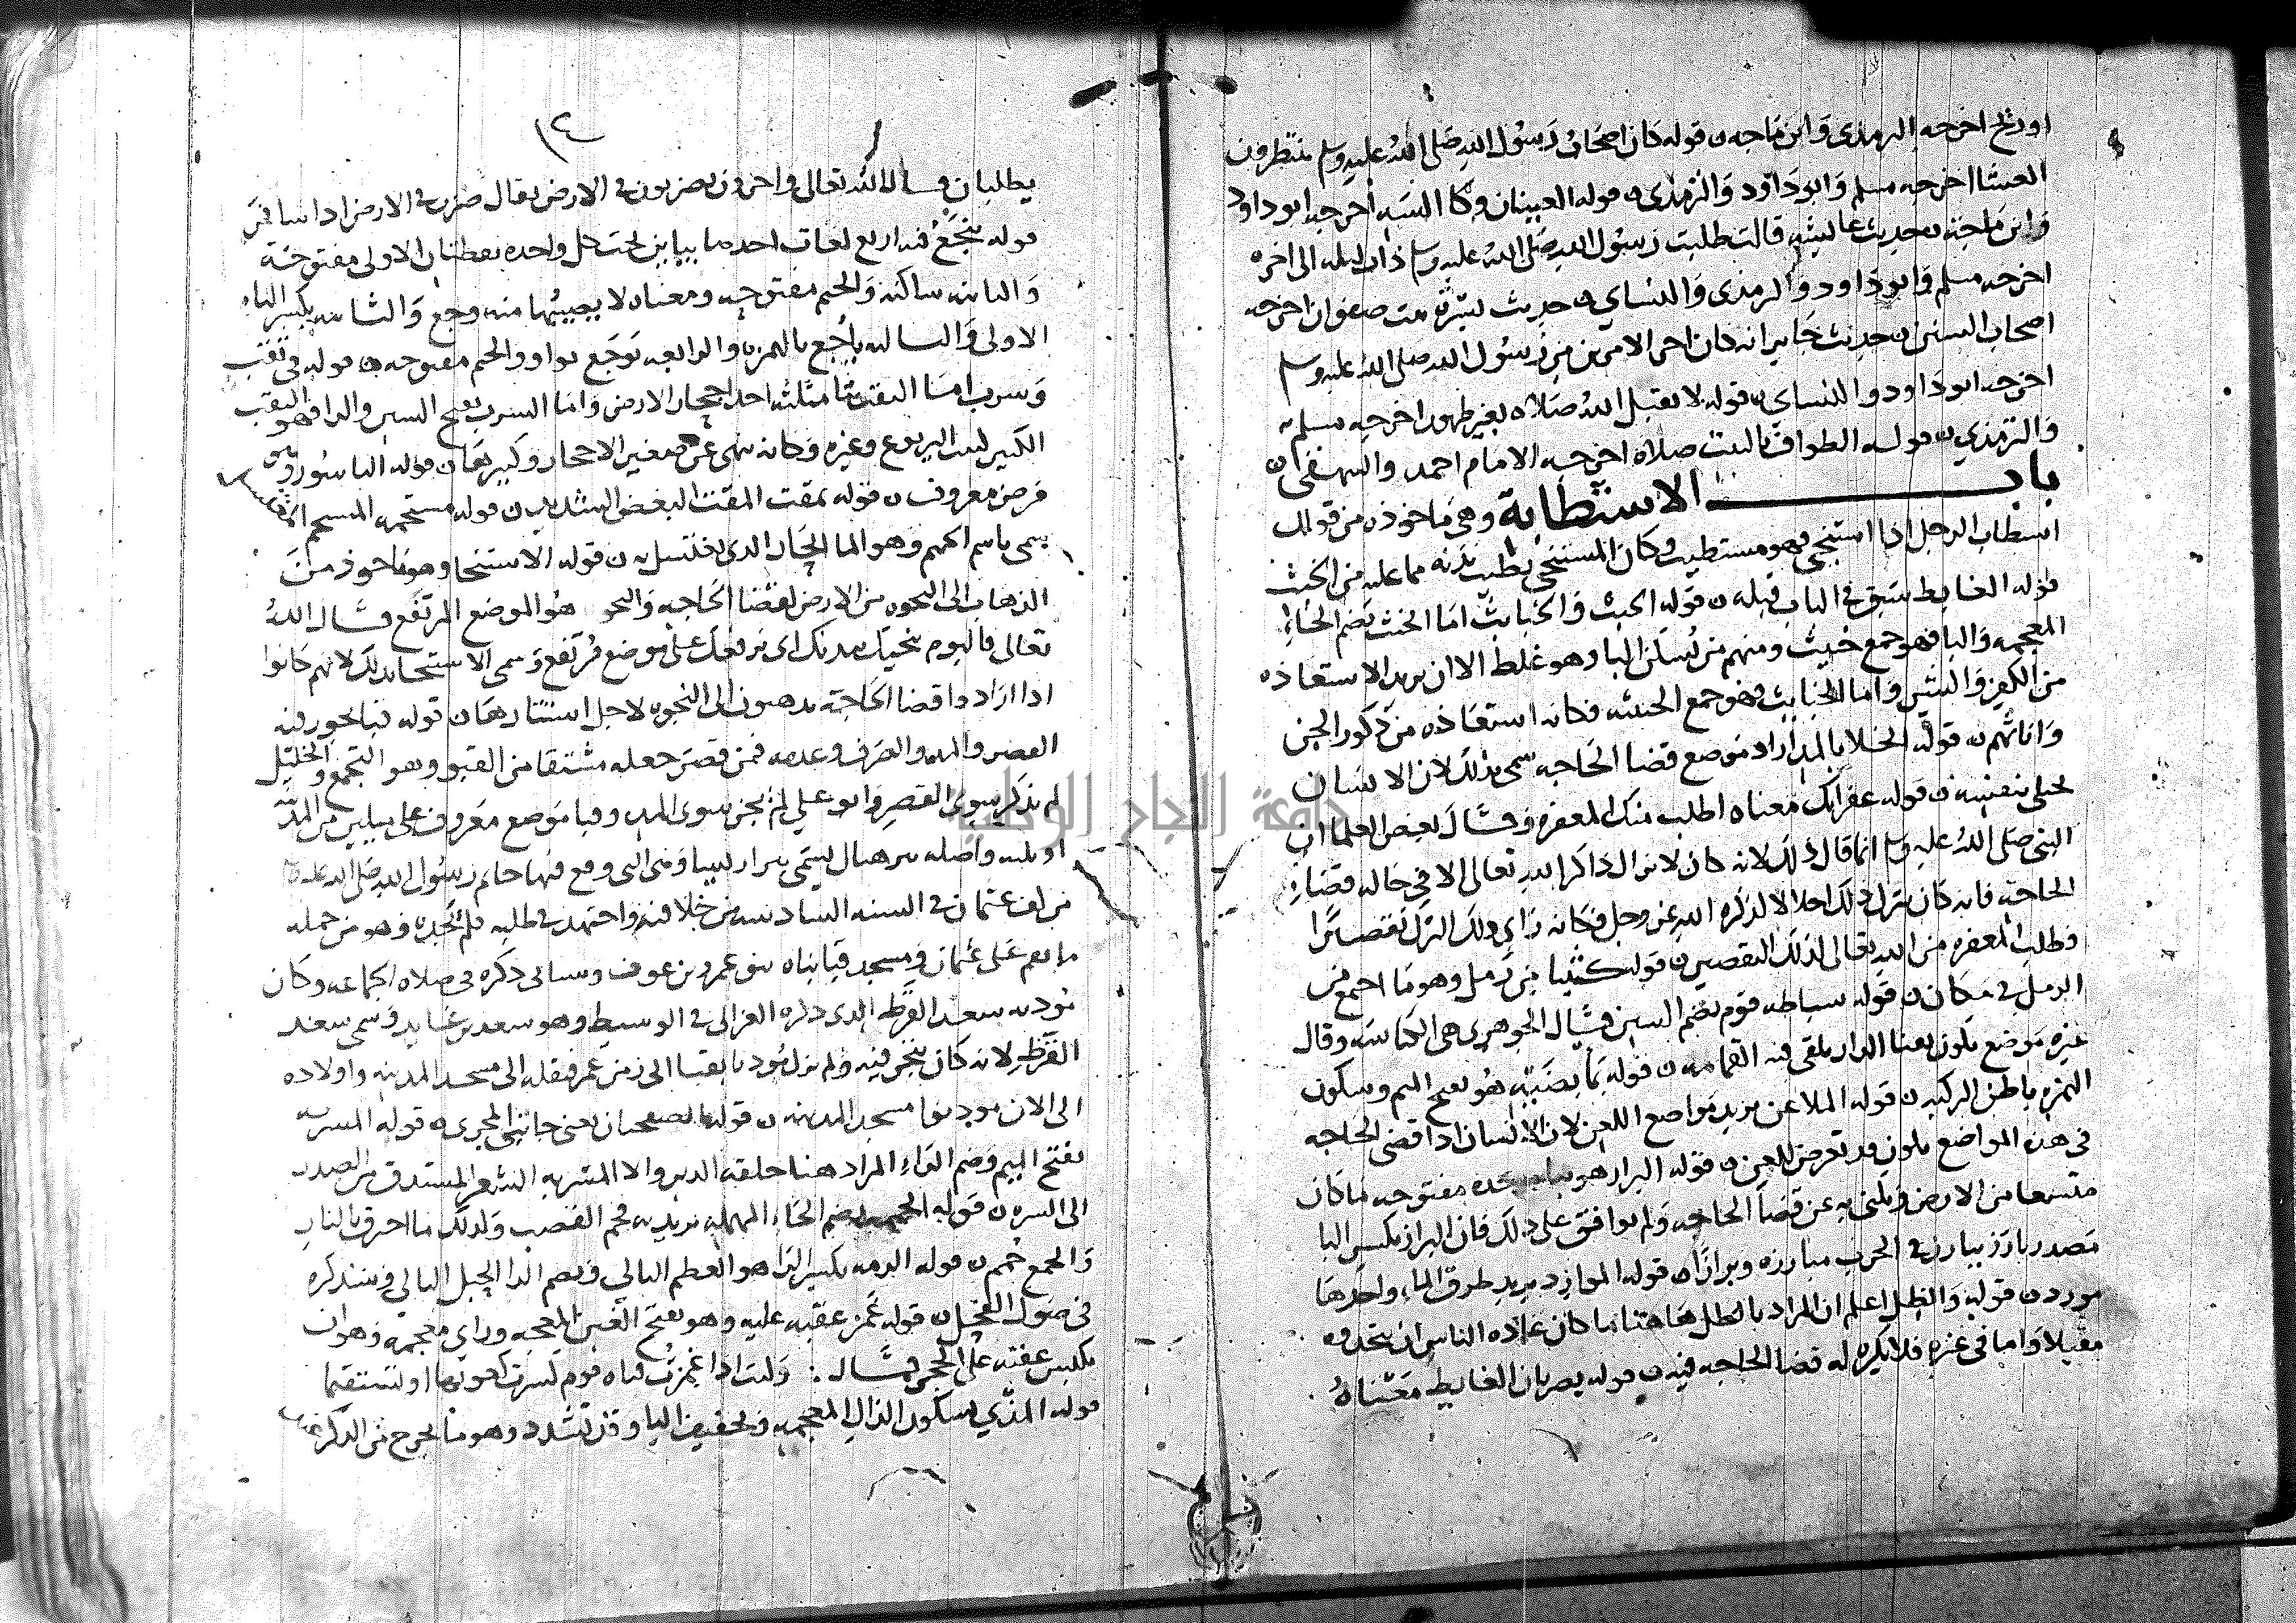 او ريح اخرجه الترمذي وابن ماجه ن قوله كان اصحاب رسول الله صلى الله عليه وسلم ينتظرون
العشا اخرجه مسلم وابو داود والترمذي ن قوله العينان وكا السه اخرجه ابو داود
وابن ماجة ن حديث عائشه قالت طلبت رسول الله صلى الله عليه وسلم ذات ليله الى اخره
اخرجه مسلم وابو داود والترمذي والنساي ن حديث بسرة بنت صفوان اخرجه
اصحاب السنن ن حديث جابر انه كان اخر الامرين من رسول الله صلى الله عليه وسلم
اخرجه ابو داود والنساي ن قوله لا يقبل الله صلاه بغير طهور اخرجه مسلم
والترمذي ن قوله الطواف بالبيت صلاه اخرجه الامام احمد والبيهقي ن
باب الاستطابة وهي ماخوذه من قولك
استطاب الرجل اذا استنجى فهو مستطيب وكان المستنجي يطيب بدنه مما عليه من الخبث
قوله الغايط سبق في الباب قبله ن قوله الخبث والخبايث اما الخبث بضم الخاء
المعجمه والبا فهو جمع خبيث ومنهم من يسكن البا وهو غلط الا ان يريد الاستعاذه
من الكفر والشر واما الخبايث فهو جمع الخبيثه فكانه استعاذه من ذكور الجن
واناثهم ن قوله الخلا بالمد اراد موضع قضا الحاجه سمى بذلك لان الانسان
يخلى بنفسه ن قوله غفرانك معناه اطلب منك المغفره وقال بعض العلما ان
النبي صلى الله عليه وسلم انما قال ذلك لانه كان لا يزال ذاكر الله تعالى الا في حاله قضاء
الحاجه فانه كان يترك ذلك اجلالا لذكره الله عز وجل فكانه راى ذلك الترك تقصيرا
وطلب المغفره من الله تعالى لذلك التقصير ن قوله كثيبا من رمل وهو ما اجتمع من
الرمل في مكان ن قوله سباطه قوم بضم السين قال الجوهري هي الكناسه وقال
غيره موضع يكون بفنا الدار يلقى فيه القمامه ن قوله بمابضيه هو بفتح الميم وسكون
الهمزه باطن الركبه ن قوله الملاعن يريد مواضع اللعن لان الانسان اذا قضى الحاجه
في هذه المواضع يكون قد تعرض للعن ن قوله البراز هو ببا موحده مفتوحه ما كان
متسعا من الارض ويكنى به عن قضا الحاجه ولم يوافق على ذلك فان البراز بكسر البا
مصدر بارز يبارز في الحرب مبارزه وبرازا ن قوله الموارد يريد طرق الماء واحدها
مورد ن قوله والظل اعلم ان المراد بالظل هاهنا ما كان عاده الناس ان يتخذوه
مقيلا واما في غيره فلا يكره له قضا الحاجه فيه ن قوله يضربان الغايط معناه
١٤
يطلبان قال الله تعالى واخرون يضربون في الارض يقال ضرب في الارض اذا سافر
قوله ييجع فيه اربع لغات احدها بيايين تحت كل واحده نقطتان الاولى مفتوحة
والثانيه ساكنه والجيم مفتوحه ومعناه لا يصيبها منه وجع والثانيه بكسر الياء
الاولى والثالثه ياجع بالهمزه والرابعه يوجع بواو والجيم مفتوحه ن قوله في ثقب
وسرب اما الثقب بثا مثلثه احد اجحار الارض واما السرب بفتح السين والرا فهو الثقب
الكبير لبيت اليربوع وغيره وكانه نهى عن صغير الاحجار وكبيرها ن قوله الباسور
مرض معروف ن قوله يمقت المقت البغض الشديد ن قوله مستحمه المستحم
يسمى باسم الحميم وهو الما الحار الذي يغتسل به ن قوله الاستنجا وهو ماخوذ من
الذهاب الى النجوه من الارض لقضا الحاجه والنجو هو الموضع المرتفع قال الله
تعالى فاليوم ننجيك ببدنك اى نرفعك على موضع مرتفع وسمى الاستنجا بذلك لانهم كانوا
اذا ارادوا قضا الحاجه يذهبون الى النجوه لاجل استتارهم ن قوله قبا يجوز فيه
القصر والمد والصرف وعدمه فمن قصر جعله مشتقا من القبو وهو التجمع والخليل
لم يذكر سوى القصر وابو علي لم يجز سوى المد وقبا موضع معروف على ميلين من المدينة
او ثلثه واصله بير هناك يسمى بيرا ريسا وهي التي وقع فيها خاتم رسول الله صلى الله عليه
من يد عثمان في السنه السادسه من خلافته واجتهد في طلبه فلم يجده وهو من جمله
ما نقم على عثمان ومسجد قبا بناه بنو عمرو بن عوف وسياتي ذكره في صلاه الجماعه وكان
يوذن به سعد القرظ الذي ذكره الغزالي في الوسيط وهو سعد بن عايذ وسمى سعد
القرظ لانه كان يتجر فيه ولم يزل يوذن بقبا الى زمن عمر فنقله الى مسجد المدينه واولاده
الى الان موذنوا مسجد المدينه ن قوله الصفحتان يعني جانبي المجرى ن قوله المسربه
بفتح الميم وضم الراء المراد هنا حلقه الدبر والا المسربه الشعر المستدق من الصدر
الى السره ن قوله الحممه بضم الحاء المهمله يريد به فحم القصب وكذلك ما احرق بالنار
والجمع حمم ن قوله الرمه بكسر الرا هو العظم البالي وبضم الرا الحبل البالي وسنذكره
في صول الفحل ن قوله غمز عقبه عليه وهو بفتح الغين المعجمه وزاى معجمة وهو ان
يكبس عقبه على الحجر قال : وكنت اذا غمزت قناه قوم كسرت كعوبها او تستقيما
قوله المذي بسكون الذال المعجمه وتخفيف اليا وقد تشدد وهو ما يخرج من الذكر
جامعة النجاح الوطنية